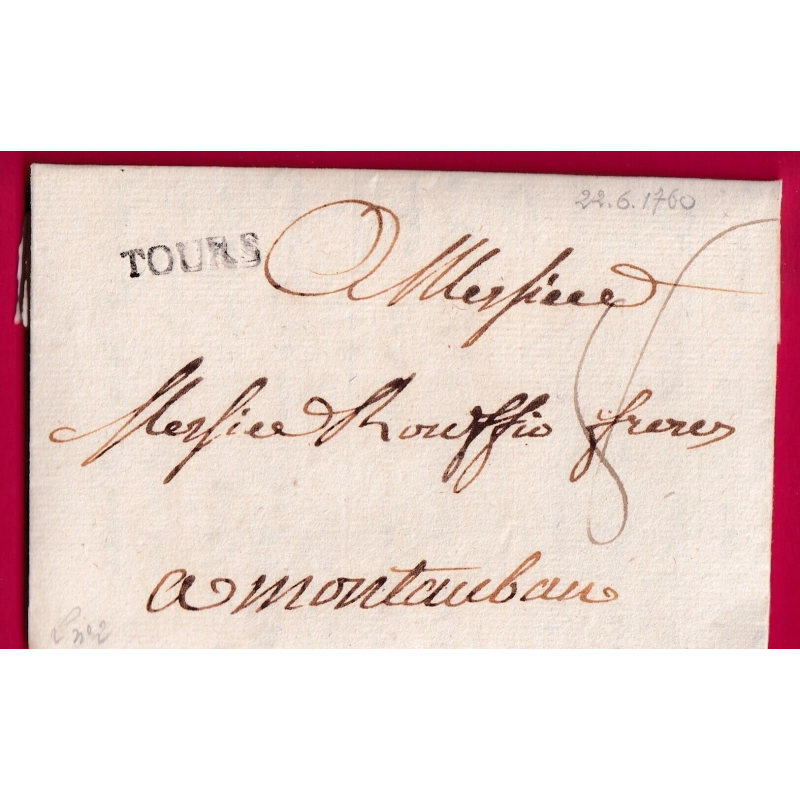 22.6.1760
TOURS
A Messieurs
Messieurs Rouffio freres
a montauban
L n°2